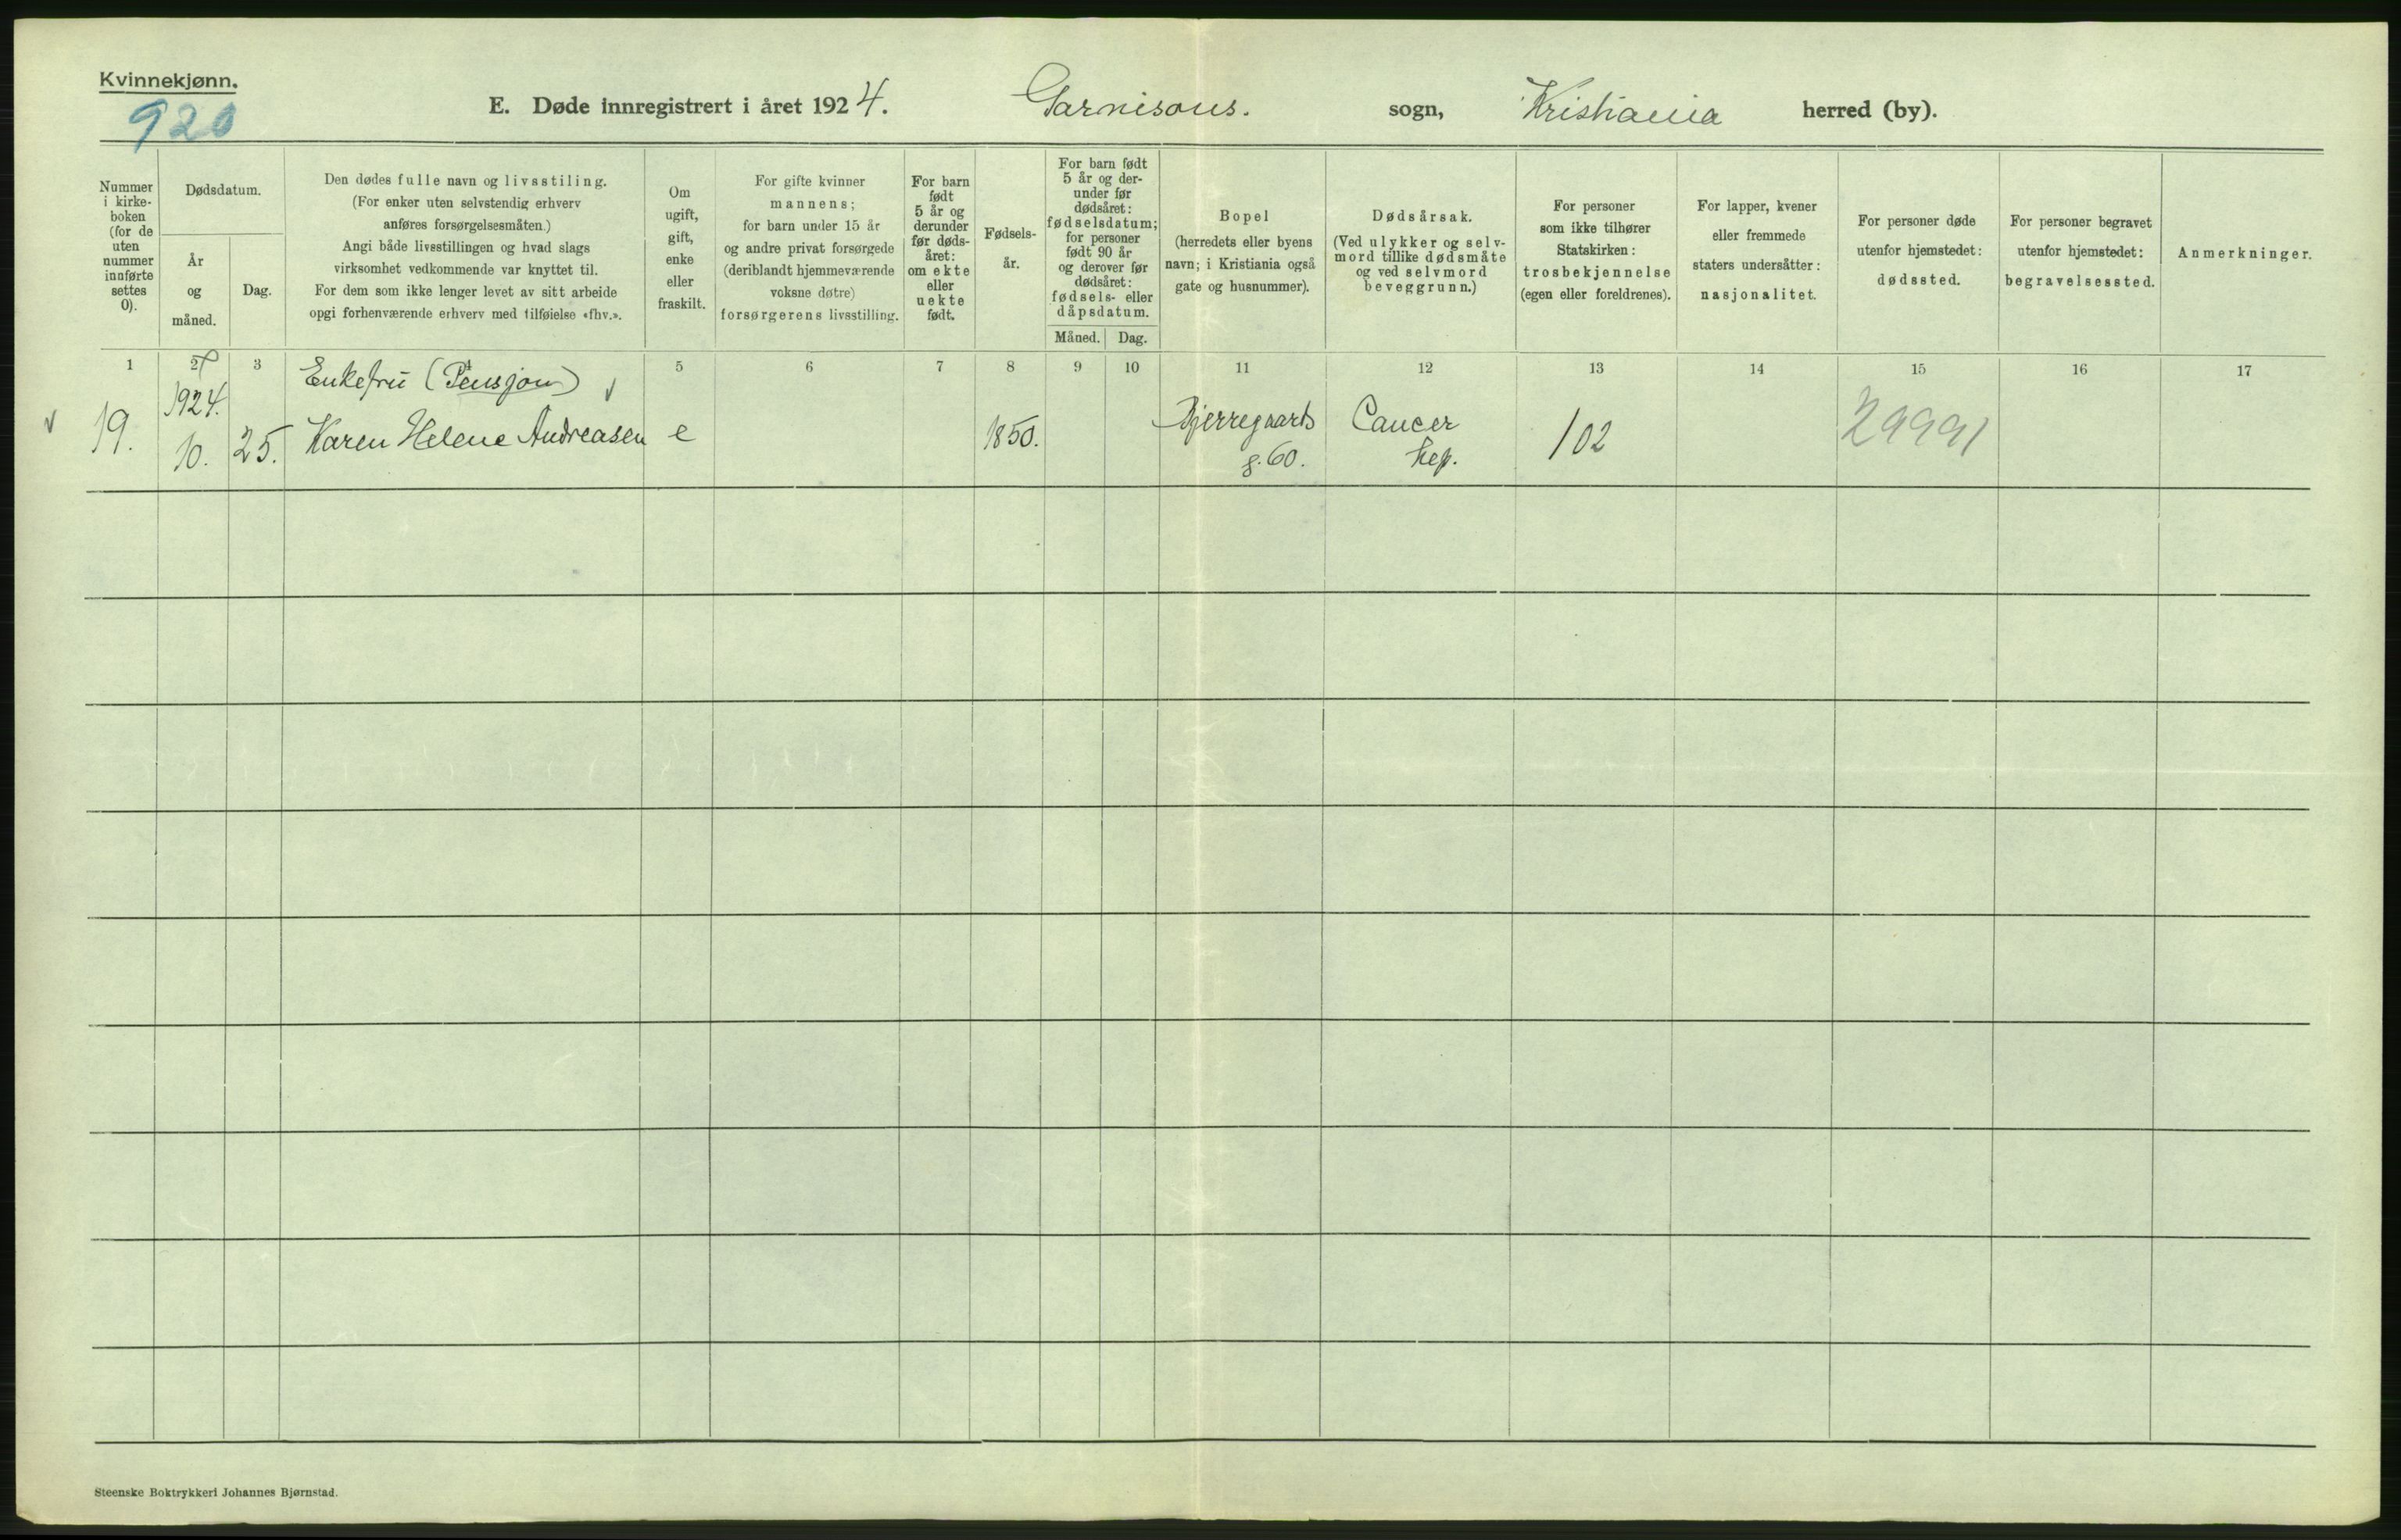 Kvinnekjønn.
920
E. Døde innregistrert i året 1924. Garnisons. sogn, Kristiania herred (by).
Nummer
i kirke-
boken
(for de
uten
nummer
innførte
settes
0).
Dødsdatum.
År
og
måned.
Dag.
Den dødes fulle navn og livsstiling.
(For enker uten selvstendig erhverv
anføres forsørgelsesmåten.)
Angi både livsstillingen og hvad slags
virksomhet vedkommende var knyttet til.
For dem som ikke lenger levet av sitt arbeide
opgi forhenværende erhverv med tilføielse «fhv.».
Om
ugift,
gift,
enke
eller
fraskilt.
For gifte kvinner
mannens;
for barn under 15 år
og andre privat forsørgede
(deriblandt hjemmeværende
voksne døtre)
forsørgerens livsstilling.
For barn
født
5 år og
derunder
før døds-
året:
om ekte
eller
uekte
født.
Fødsels-
år.
For barn født
5 år og der-
under før
dødsåret:
fødselsdatum;
for personer
født 90 år
og derover før
dødsåret:
fødsels- eller
dåpsdatum.
Måned. Dag.
Bopel
(herredets eller byens
navn; i Kristiania også
gate og husnummer).
Dødsårsak.
(Ved ulykker og selv-
mord tillike dødsmåte
og ved selvmord
beveggrunn.)
For personer
som ikke tilhører
Statskirken:
trosbekjennelse
(egen eller foreldrenes).
For lapper, kvener
eller fremmede
staters undersåtter:
nasjonalitet.
For personer døde
utenfor hjemstedet:
dødssted.
For personer begravet
utenfor hjemstedet:
begravelsessted.
Anmerkninger.
1 2 3 5 6 7 8 9 10 11 12 13 14 15 16 17
Enkefru (Pensjon) √
√ 19. 1924. 10. 25. Karen Helene Andreasen e 1850. Bjerregaards
g. 60. Cancer
hep. 102 29991
Steenske Boktrykkeri Johannes Bjørnstad.